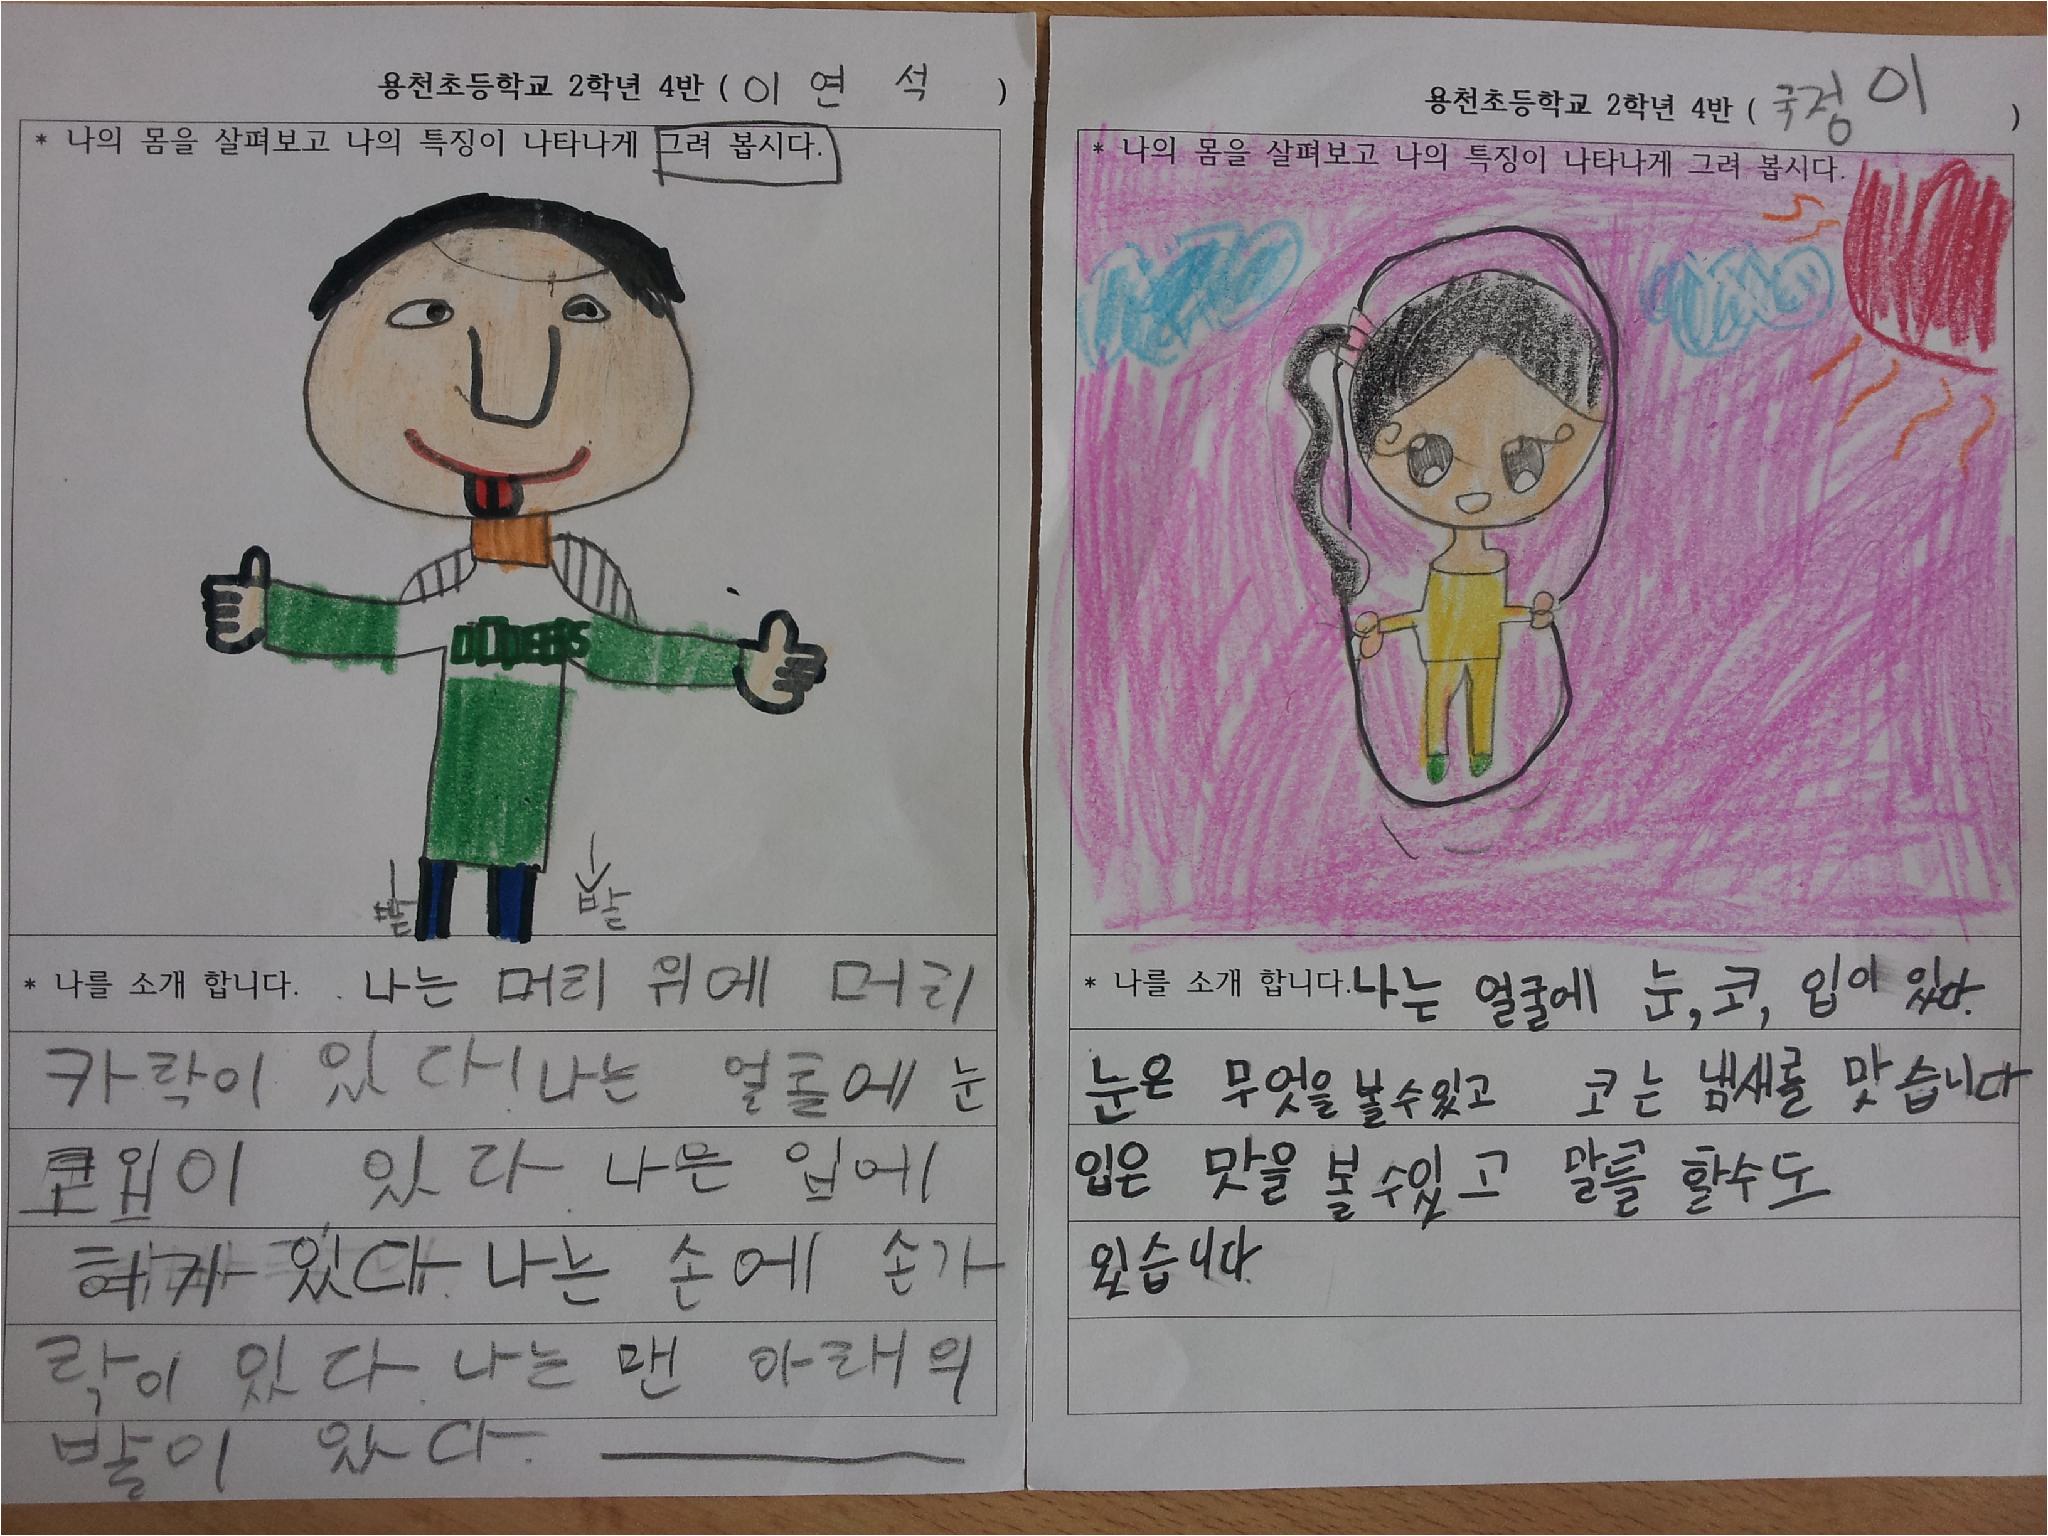 용천초등학교 2학년 4반 ( 이 연 석 )
* 나의 몸을 살펴보고 나의 특징이 나타나게 그려 봅시다.
발 발
* 나를 소개 합니다. 나는 머리 위에 머리
카락이 있다! 나는 얼롤에 눈
코입이 있다 나믄 입에
혀카 있다. 나는 손에 손가
락이 있다. 나는 맨 아래의
발이 있다.
용천초등학교 2학년 4반 ( 국정이 )
* 나의 몸을 살펴보고 나의 특징이 나타나게 그려 봅시다.
* 나를 소개 합니다. 나는 얼굴에 눈, 코, 입이 있다.
눈은 무엇을 볼수있고 코는 냄새를 맞습니다
입은 맛을 볼 수있고 말를 할수도
있습니다.